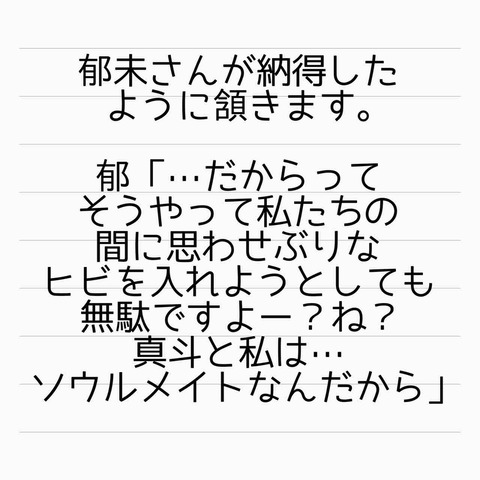 郁未さんが納得した
ように頷きます。
郁「…だからって
そうやって私たちの
間に思わせぶりな
ヒビを入れようとしても
無駄ですよー?ね?
真斗と私は…
ソウルメイトなんだから」